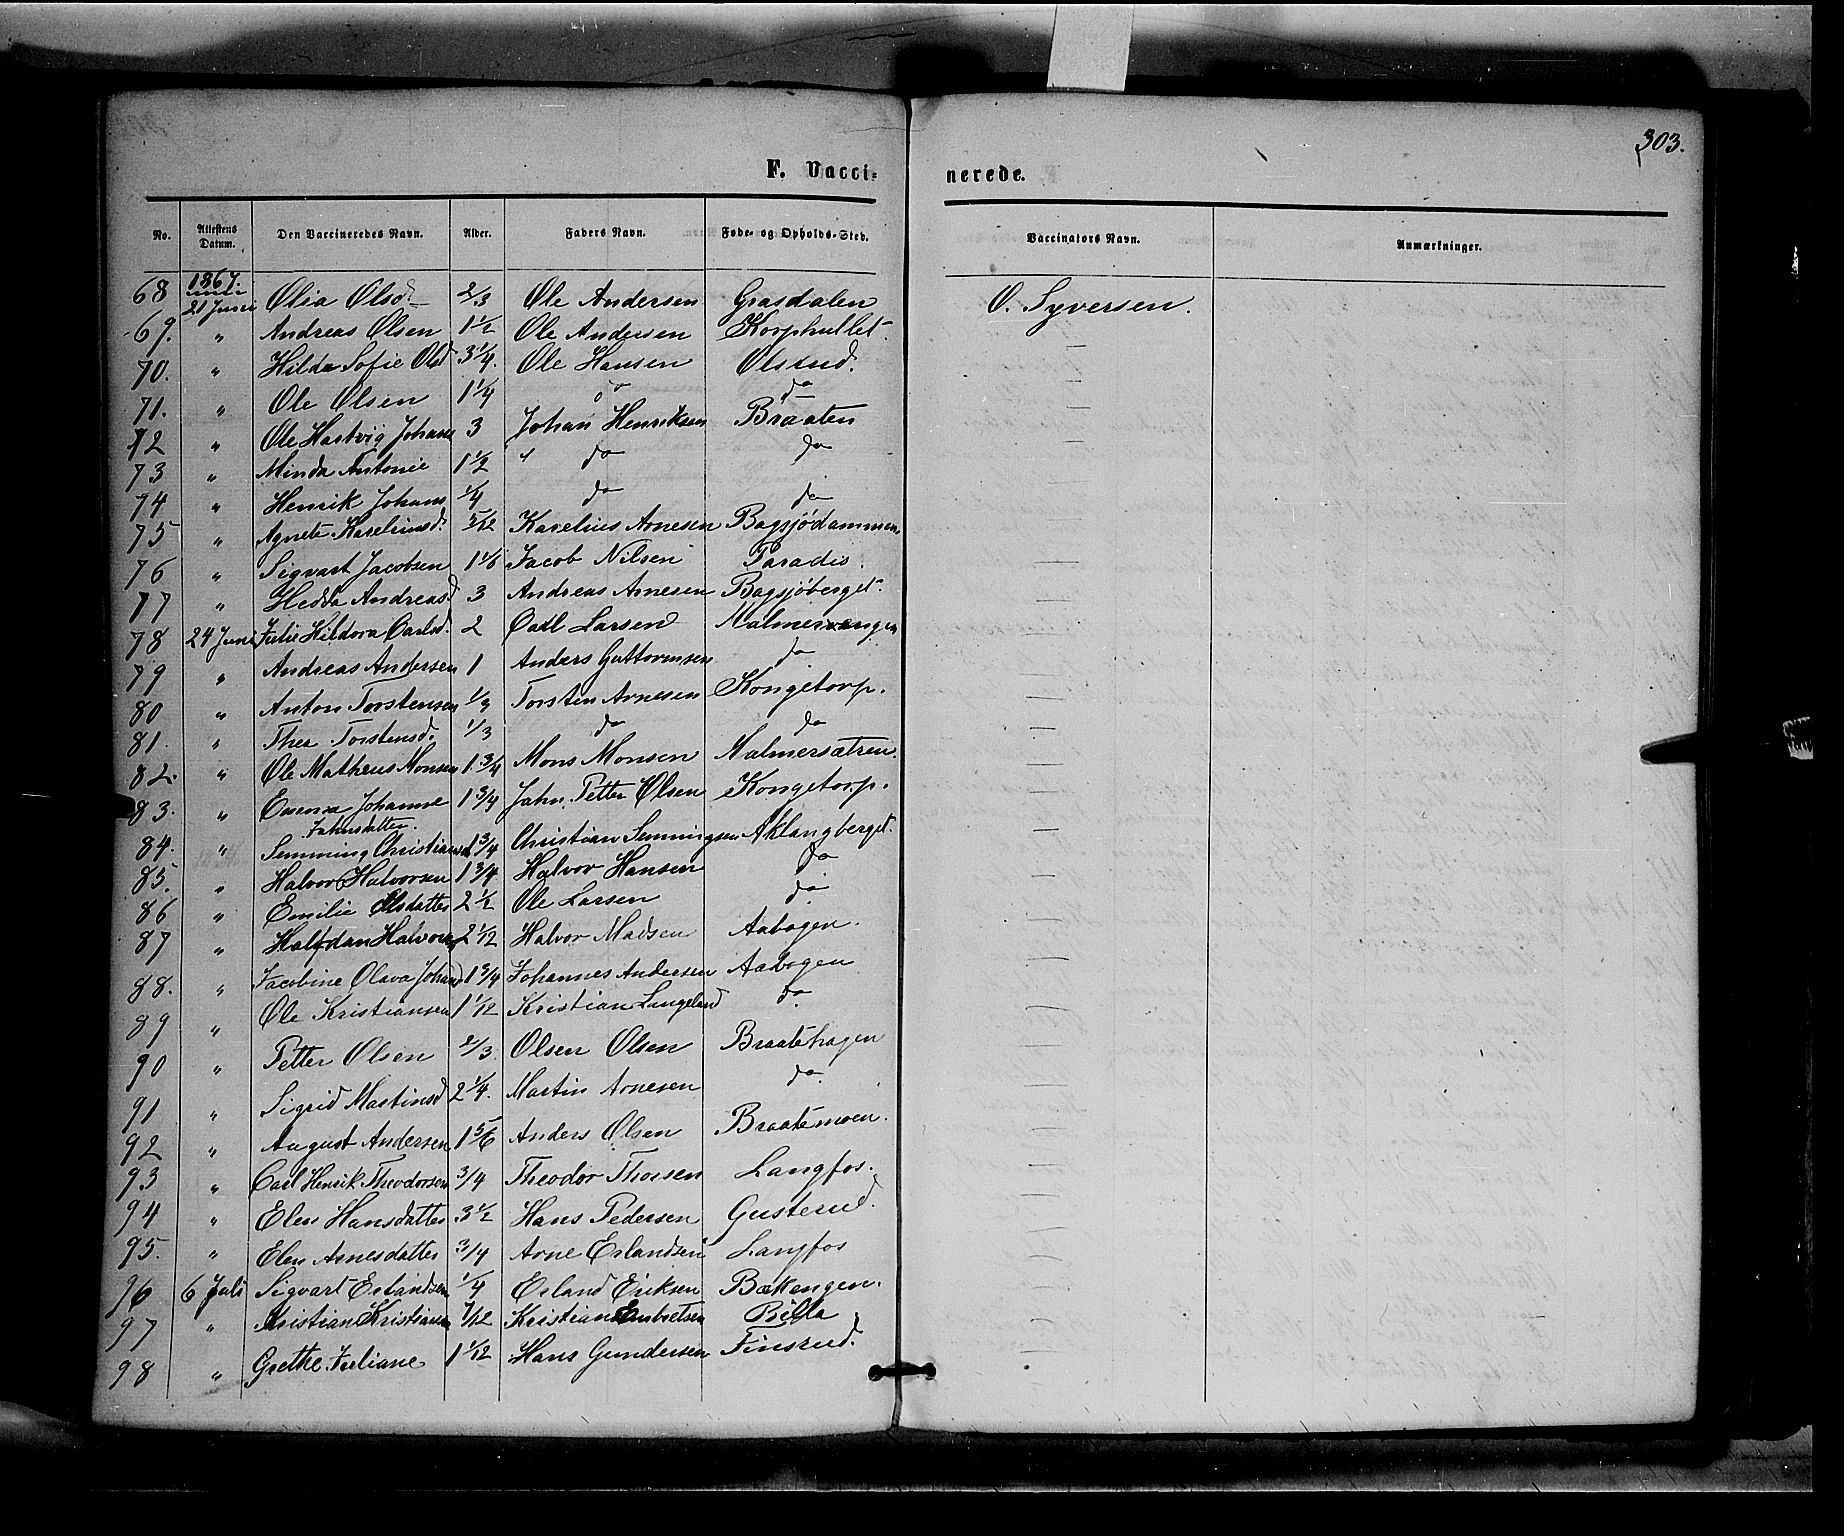 303.
F. Vacci- nerede.
No. Attestens Datum. Den Vaccineredes Navn. Alder. Faders Navn. Føde- og Opholds-Sted. Vaccinators Navn. Anmærkninger.
1867.
68 21 Juni Olia Olsd. 2/3 Ole Andersen Grasdalen O. Syversen.
69. " Andreas Olsen 1 1/2 Ole Andersen Korphullet —
70. " Hilda Sofie Olsd 3 1/4. Ole Hansen Olsrud. —
71. " Ole Olsen 1 1/4 do do —
72 " Ole Hartvig Johans 3 Johan Henriksen Braaten —
73 " Minda Antonie 1 1/2 " do do —
74 " Henrik Johans 1/4 do do —
75 " Agnete Kareliusd. 5/12 Karelius Arnesen Bagsjödammen —
76 " Sigvart Jacobsen 1 1/6 Jacob Nilsen Paradis. —
77 " Hedda Andreasd 3 Andreas Arnesen Bagsjöberget. —
78 24 Juni Julie Hildora Carlsd. 2 Carl Larsen Malmervangen —
79 " Andreas Andersen 1 Anders Guttormsen do —
80 " Anton Torstensen 1/3 Torsten Arnesen Kongetorp. —
81. " Thea Torstensd. 1/3 do do —
82. " Ole Matheus Monsen 1 3/4 Mons Monsen Malmersætren. —
83. " Evensa Johanne Jahnsdatter. 1 3/4 Jahn Petter Olsen Kongetorp. —
84. " Semming Christians 1 3/4 Christian Semmingsen Aklangberget. —
85. " Halvor Halvorsen 1 3/4 Halvor Hansen do —
86 " Emilie Olsdatter 2 1/2 Ole Larsen do —
87 " Halfdan Halvors 2 1/12 Halvor Madsen Aabogen. —
88. " Jacobine Olava Johansd 1 3/4 Johannes Andersen Aabogen —
89 " Ole Kristiansen 1 1/12 Kristian Langeland do. —
90 " Petter Olsen 2/3. Olsen Olsen Braatehagen —
91 " Sigrid Martinsd 2 1/4. Martin Arnesen do. —
92 " August Andersen 1 5/6 Anders Olsen Braatemoen. —
93 " Carl Henrik Theodorsen 3/4 Theodor Thorsen Langfos. —
94 " Elen Hansdatter 3 1/2 Hans Pedersen Gusterud. —
95. " Elen Arnesdatter 3/4 Arne Erlandsen Langfos —
96 6 Juli Sigvart Erlandsen 1/4 Erland Eriksen Bækengen. —
97 " Kristian Kristians 7/12 Kristian Embretsen Pilla —
98 " Grethe Juliane 1 1/12 Hans Gundersen Finsrud. —